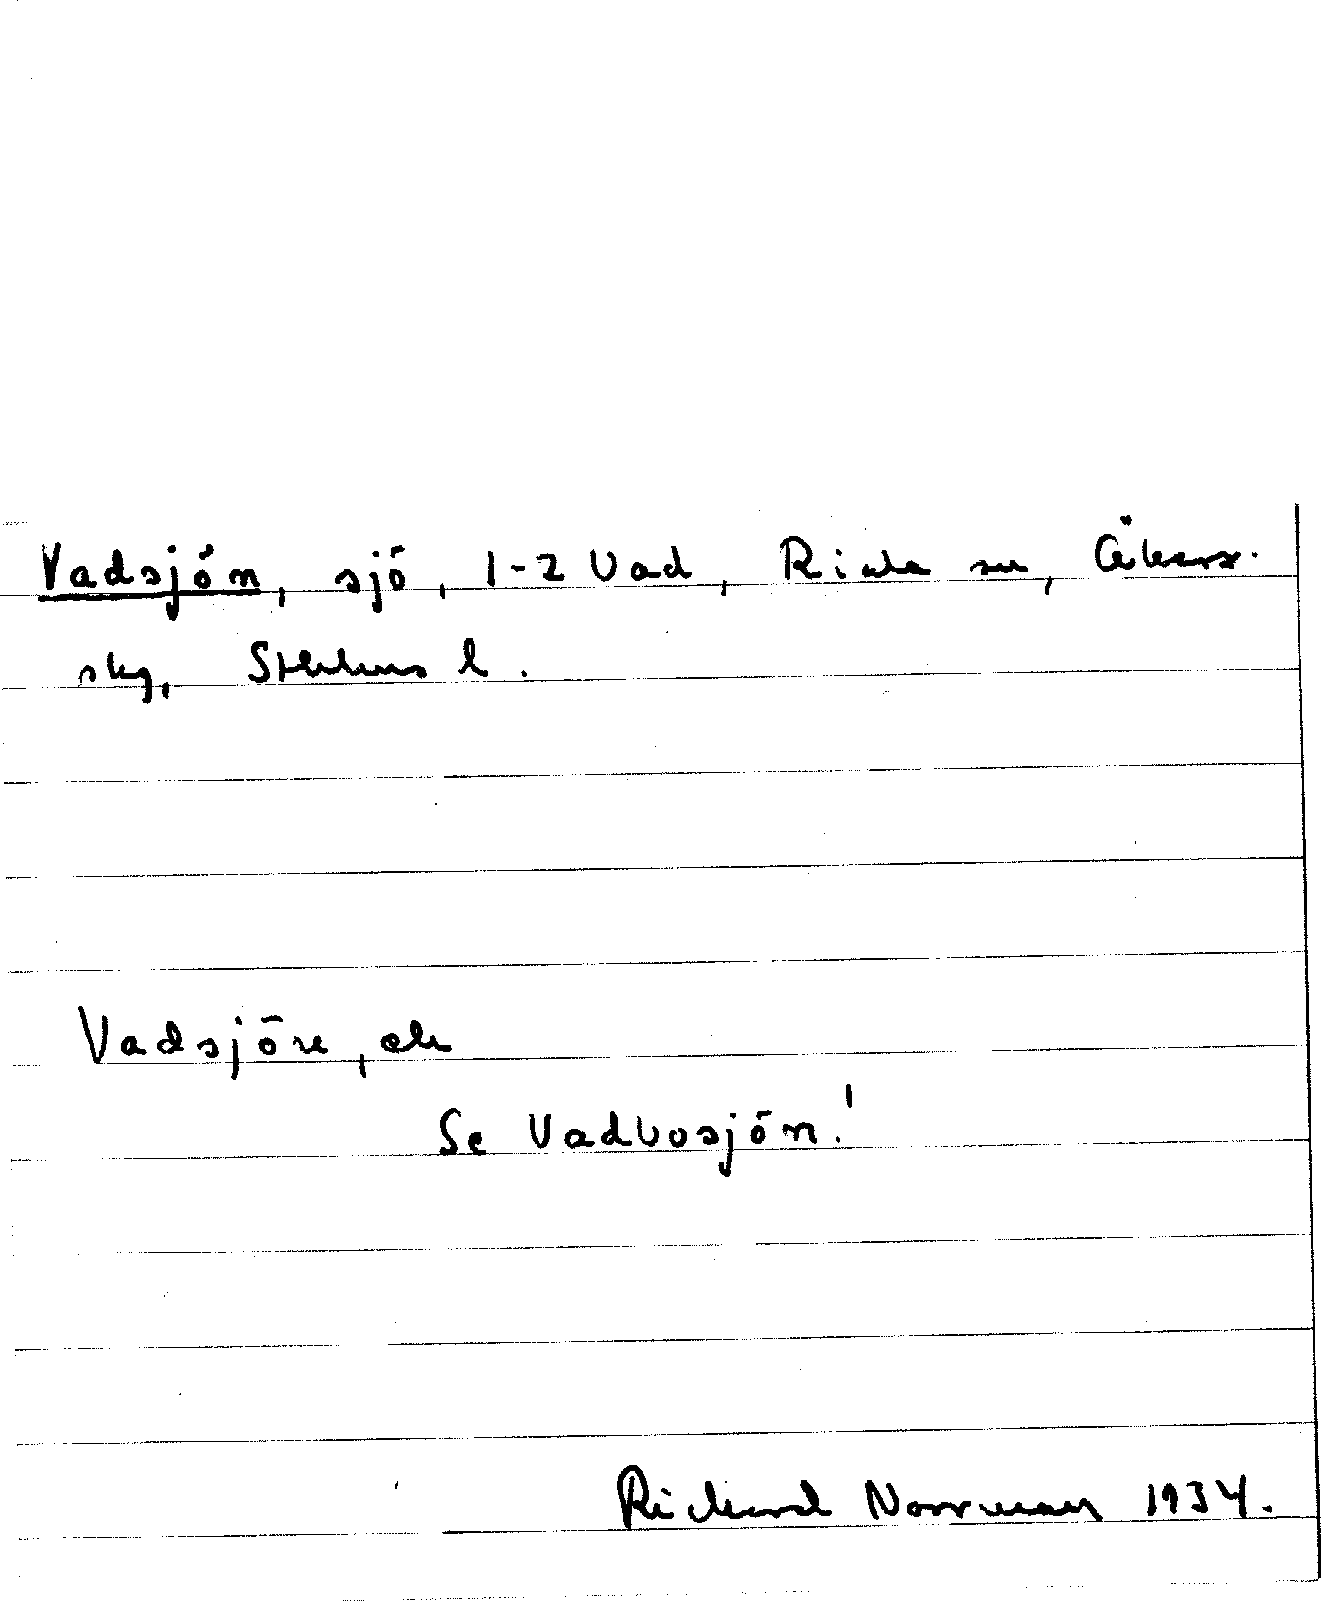 Vadsjön, sjö, 1-2 Vad, Riala sn, Åkers
skg, Sthlms l.
Vadsjön, ak
Se Vadvosjön!
Rickard Norrman 1934.